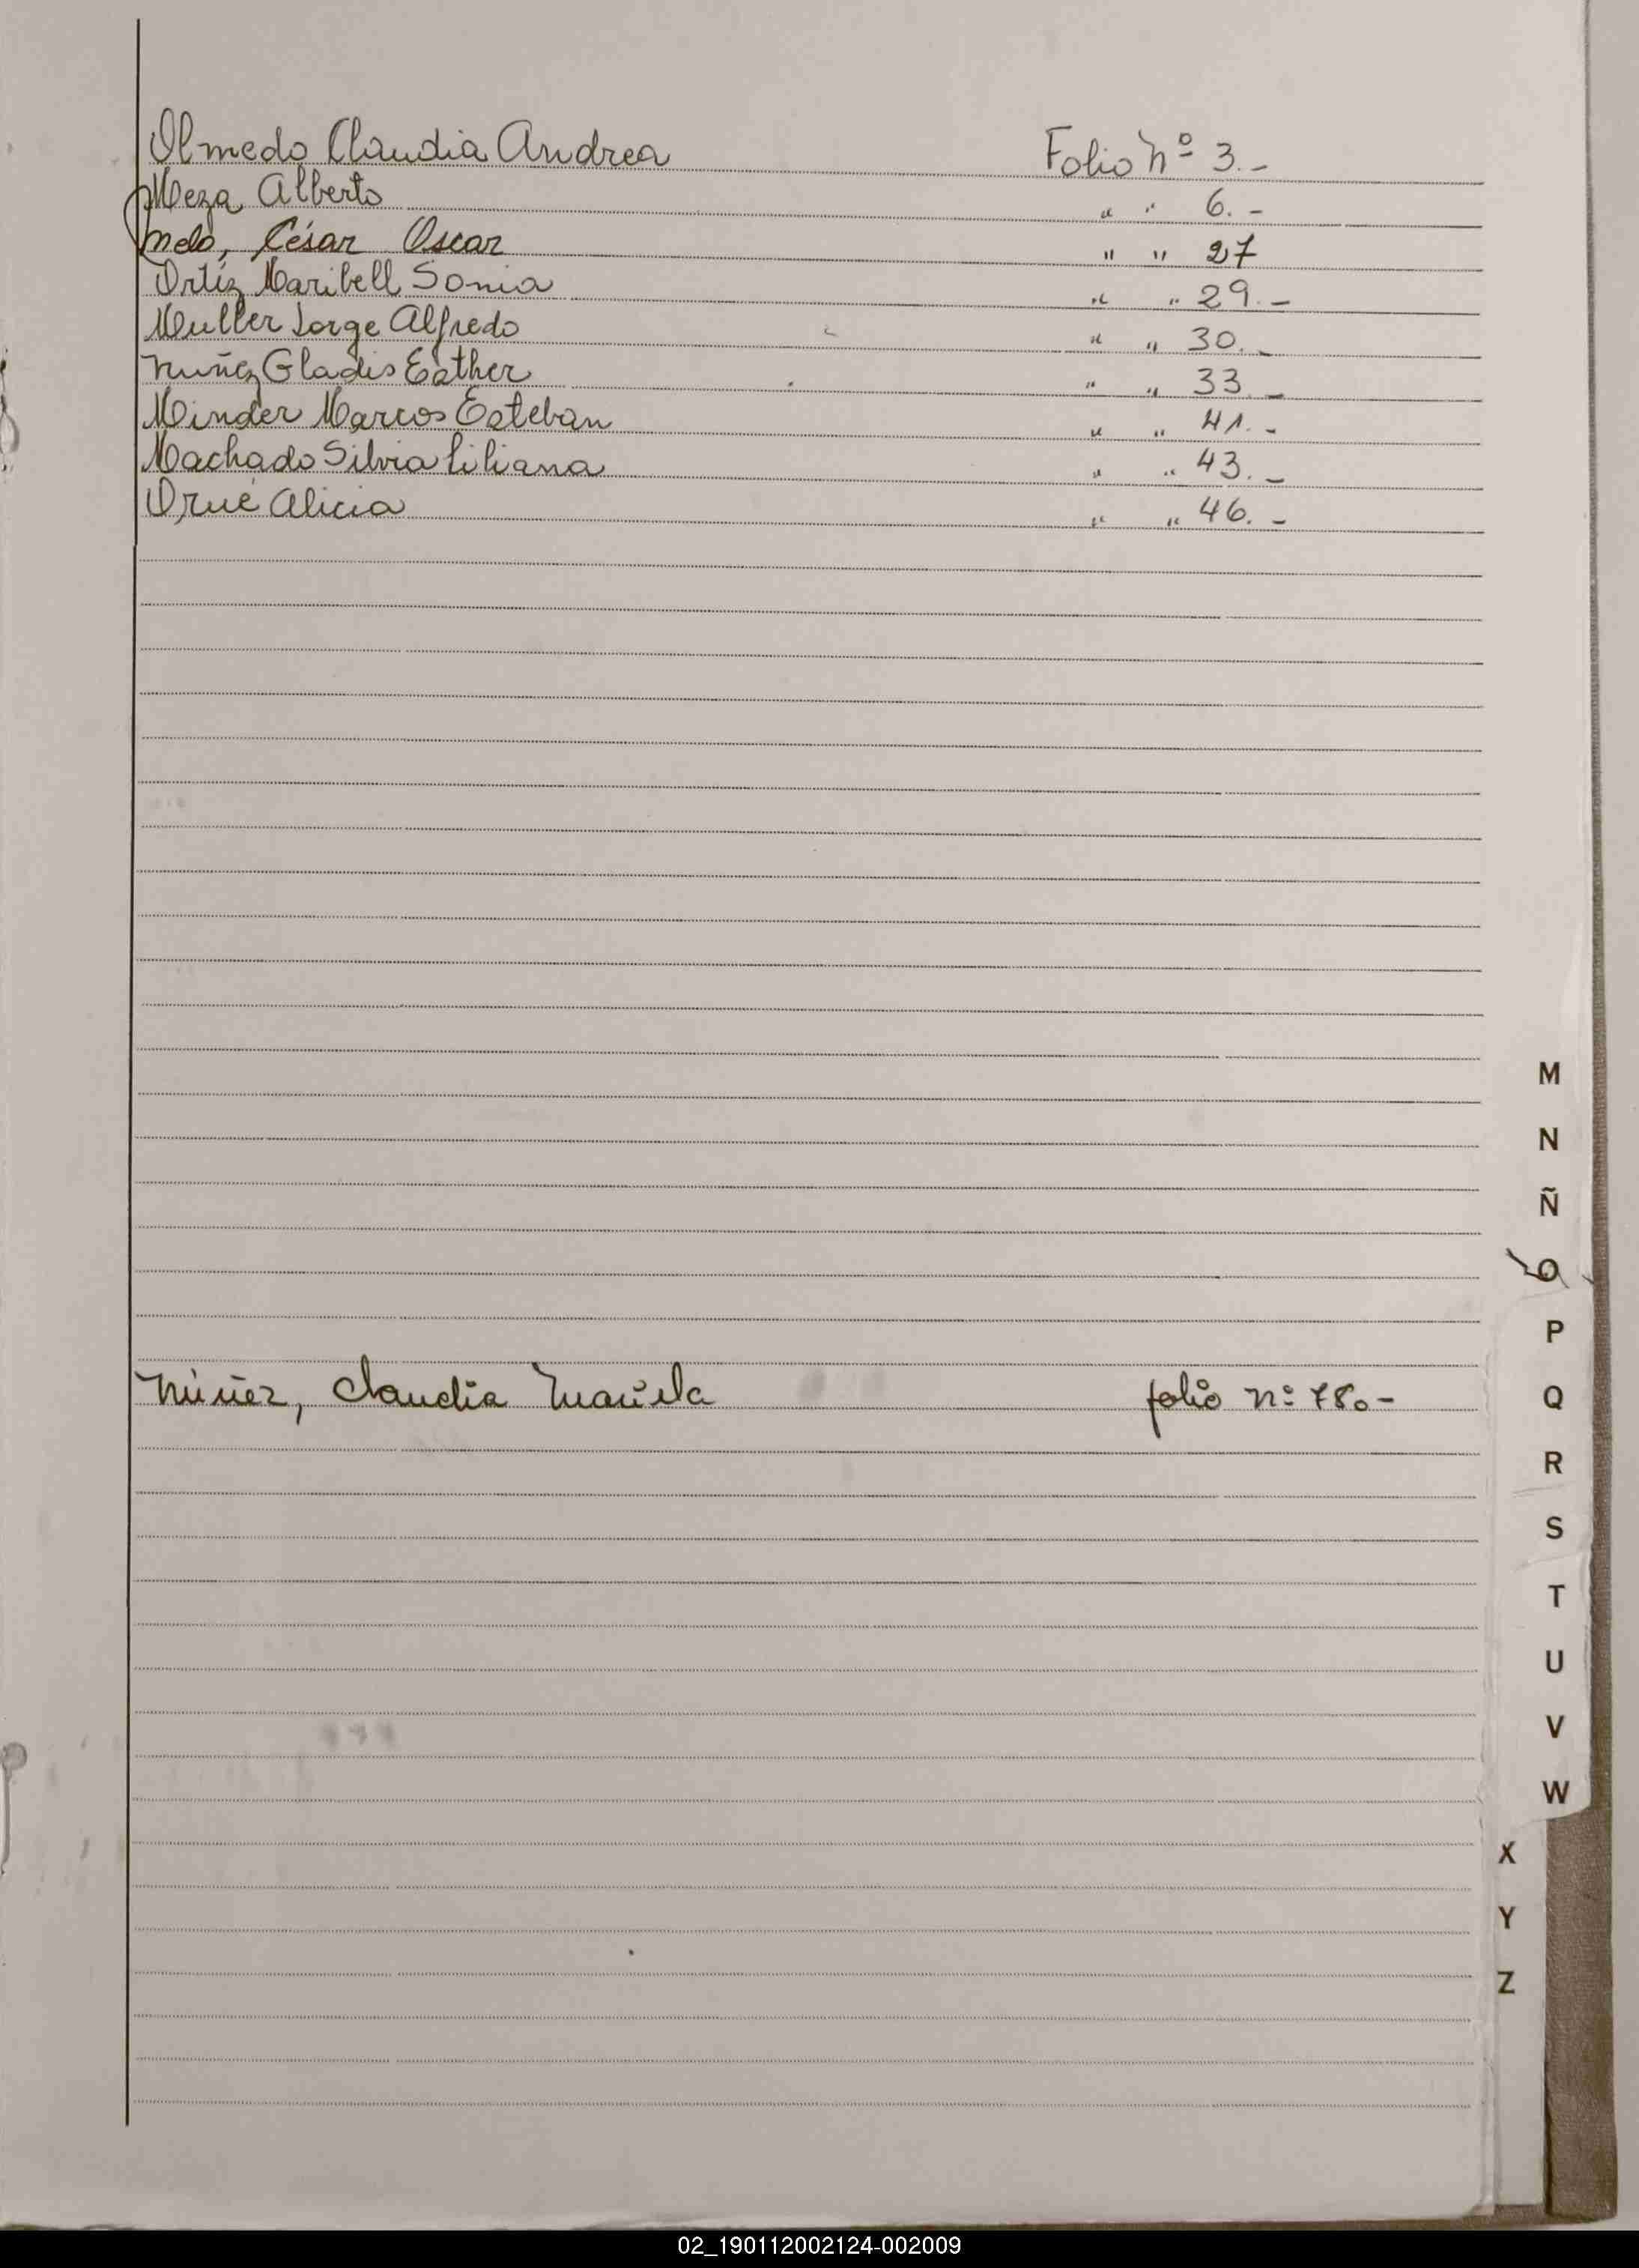 Olmedo Claudia Andrea Folio Nº 3.-
Meza Alberto " " 6.-
Melo, César Oscar " " 27
Ortíz Maribell Sonia " " 29.-
Muller Jorge Alfredo " " 30.-
Nuñez Gladis Esther " " 33.-
Minder Marcos Esteban " " 41.-
Machado Silvia Liliana " " 43.-
Orué Alicia " " 46.-
M
N
Ñ
O
P
Núñez, Claudia Mariela folio nº 780-
Q
R
S
T
U
V
W
X
Y
Z
02_190112002124-002009